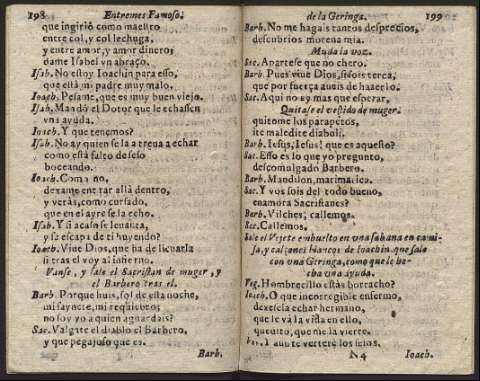 198 Entremes Famoso.
que ingirió como maestro
entre col, y col lechuga,
y entre amor, y amor dinero;
dame Isabel vn abraço.
Isab. No estoy Ioachin para esso,
que està mi padre muy malo,
Ioach. Pesame, que es muy buen viejo.
Isab. Mandò el Dotor que le echassen
vna ayuda.
Ioach. Y que tenemos?
Isab. No ay quien se la atreua a echar
como està falto de seso
boceando.
Ioach. Coma no,
dexame entrar allà dentro,
y veràs, como cursado,
que en el ayre se la echo.
Isab. Y si acaso se leuanta,
y se escapa de ti huyendo?
Ioach. Viue Dios, que ha de lleuarla
si tras el voy al infierno.
Vanse, y sale el Sacristan de muger, y
el Barbero tras el.
Barb. Porque huis, sol de esta noche,
mi saynete, mi requiebro;
no soy yo a quien aguardais?
Sac. Valgate el diablo el Barbero,
y que pegajoso que es.
Barb.
de la Geringa. 199
Barb. No me hagais tantos desprecios,
descubrios morena mia.
Muda la voz.
Sac. Apartese que no chero.
Barb. Pues viue Dios, si sois terca,
que por fuerça aueis de hazerlo.
Sac. Aqui no ay mas que esperar,
Quitase el vestido de muger.
quitome los parapetos,
ite maledite diaboli.
Barb. Iesus, Iesus! que es aquesto?
Sac. Esso es lo que yo pregunto,
descomulgado Barbero.
Barb. Mandilon, marimarica.
Sac. Y vos sois del todo bueno,
enamora Sacristanes?
Barb. Vilches, callemos.
Sac. Callemos.
Sale el Vejete embuelto en vna sabana en camisa,
y calçones blancos de Ioachin que sale
con vna Geringa, como que le hecha
vna ayuda.
Veg. Hombrecillo estàs borracho?
Ioach. O que incorregible enfermo,
dexesela echar hermano,
que le và la vida en ello,
quedito, que me la vierte.
Y aun te vertere los sesos.
N4 Ioach.